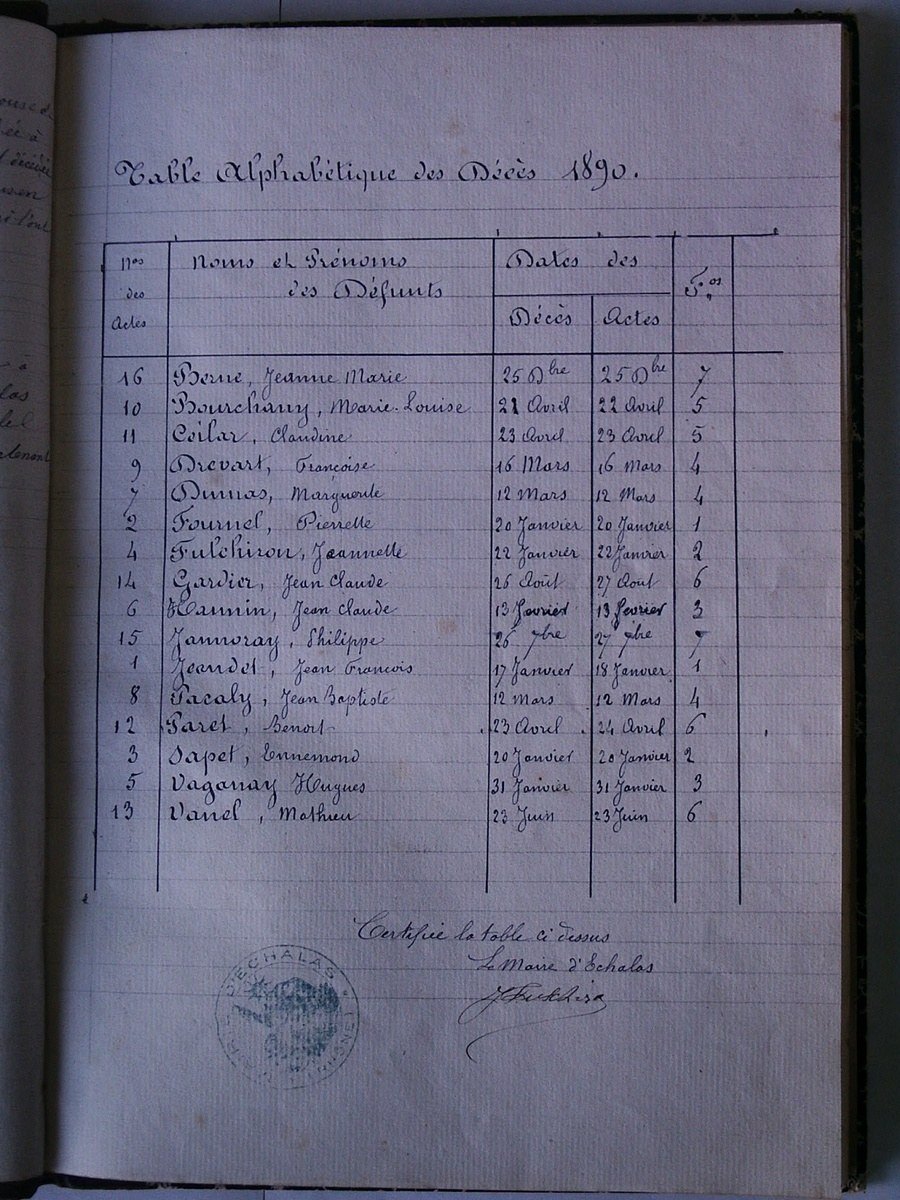 Table Alphabétique des Décès 1890.
Nos des Actes Noms et Prénoms des Défunts Dates des Fos
Décès Actes
16 Berne, Jeanne Marie 25 Dbre 25 Dbre 7
10 Bourchany, Marie-Louise 21 Avril 22 Avril 5
11 Ceilar, Claudine 23 Avril 23 Avril 5
9 Drevart, Françoise 16 Mars 16 Mars 4
7 Dumas, Marguerite 12 Mars 12 Mars 4
2 Fournel, Pierrette 20 Janvier 20 Janvier 1
4 Fulchiron, Jeannette 22 Janvier 22 Janvier 2
14 Gardier, Jean Claude 26 Août 27 Aout 6
6 Hannin, Jean Claude 13 fevrier 13 fevrier 3
15 Jannoray, Philippe 26 7bre 27 7bre 7
1 Jeandet, Jean François 17 Janvier 18 Janvier 1
8 Pacaly, Jean Baptiste 12 Mars 12 Mars 4
12 Paret, Benoit 23 Avril 24 Avril 6
3 Sapet, Ennemond 20 Janvier 20 Janvier 2
5 Vaganay Hugues 31 Janvier 31 Janvier 3
13 Vanel, Mathieu 23 Juin 23 Juin 6
Certifiée la table ci dessus
Le Maire d'Echalas
D'ECHALAS